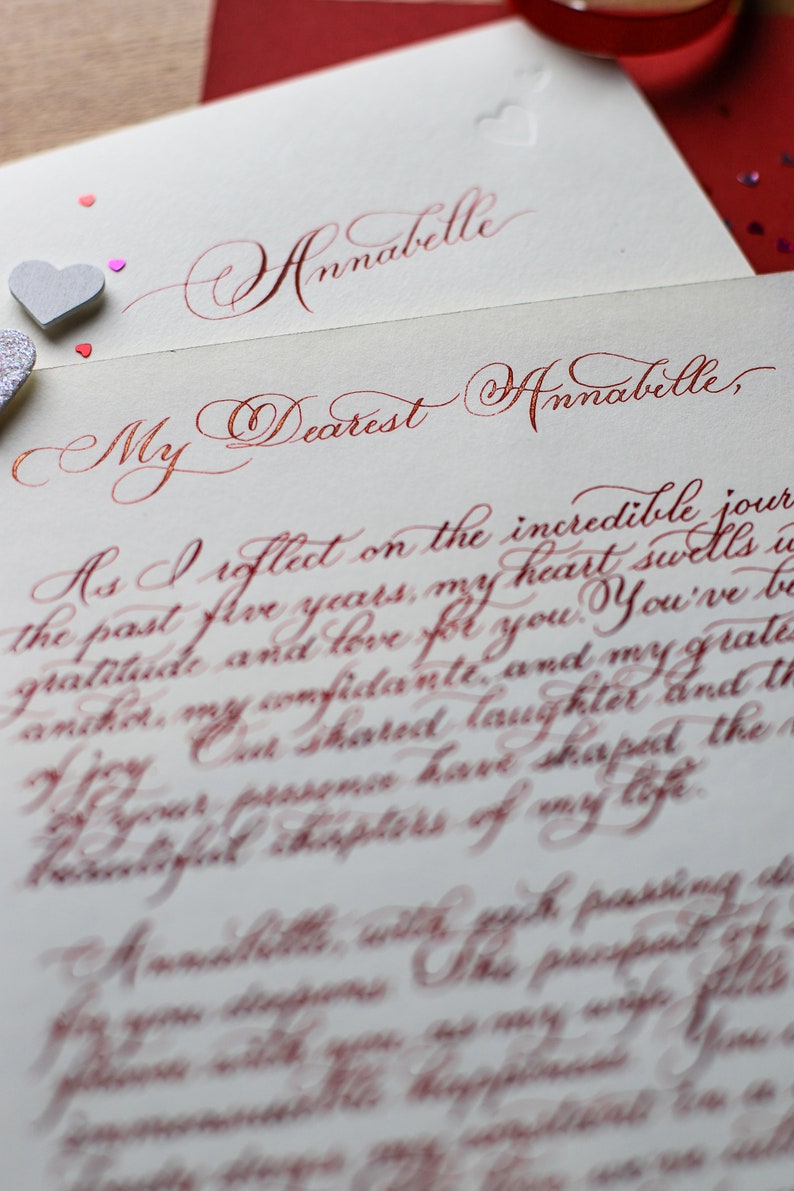 Annabelle
My Dearest Annabelle,
As I reflect on the incredible jour
the past five years, my heart swells w
gratitude and love for you. You've be
anchor, my confidante, and my grates
of joy. Our shared laughter and th
of your presence have shaped the
beautiful chapters of my life.
Annabelle, with each passing d
for you deepens. The prospect of
future with you as my wife fills
immeasurable happiness. You
my constant in a